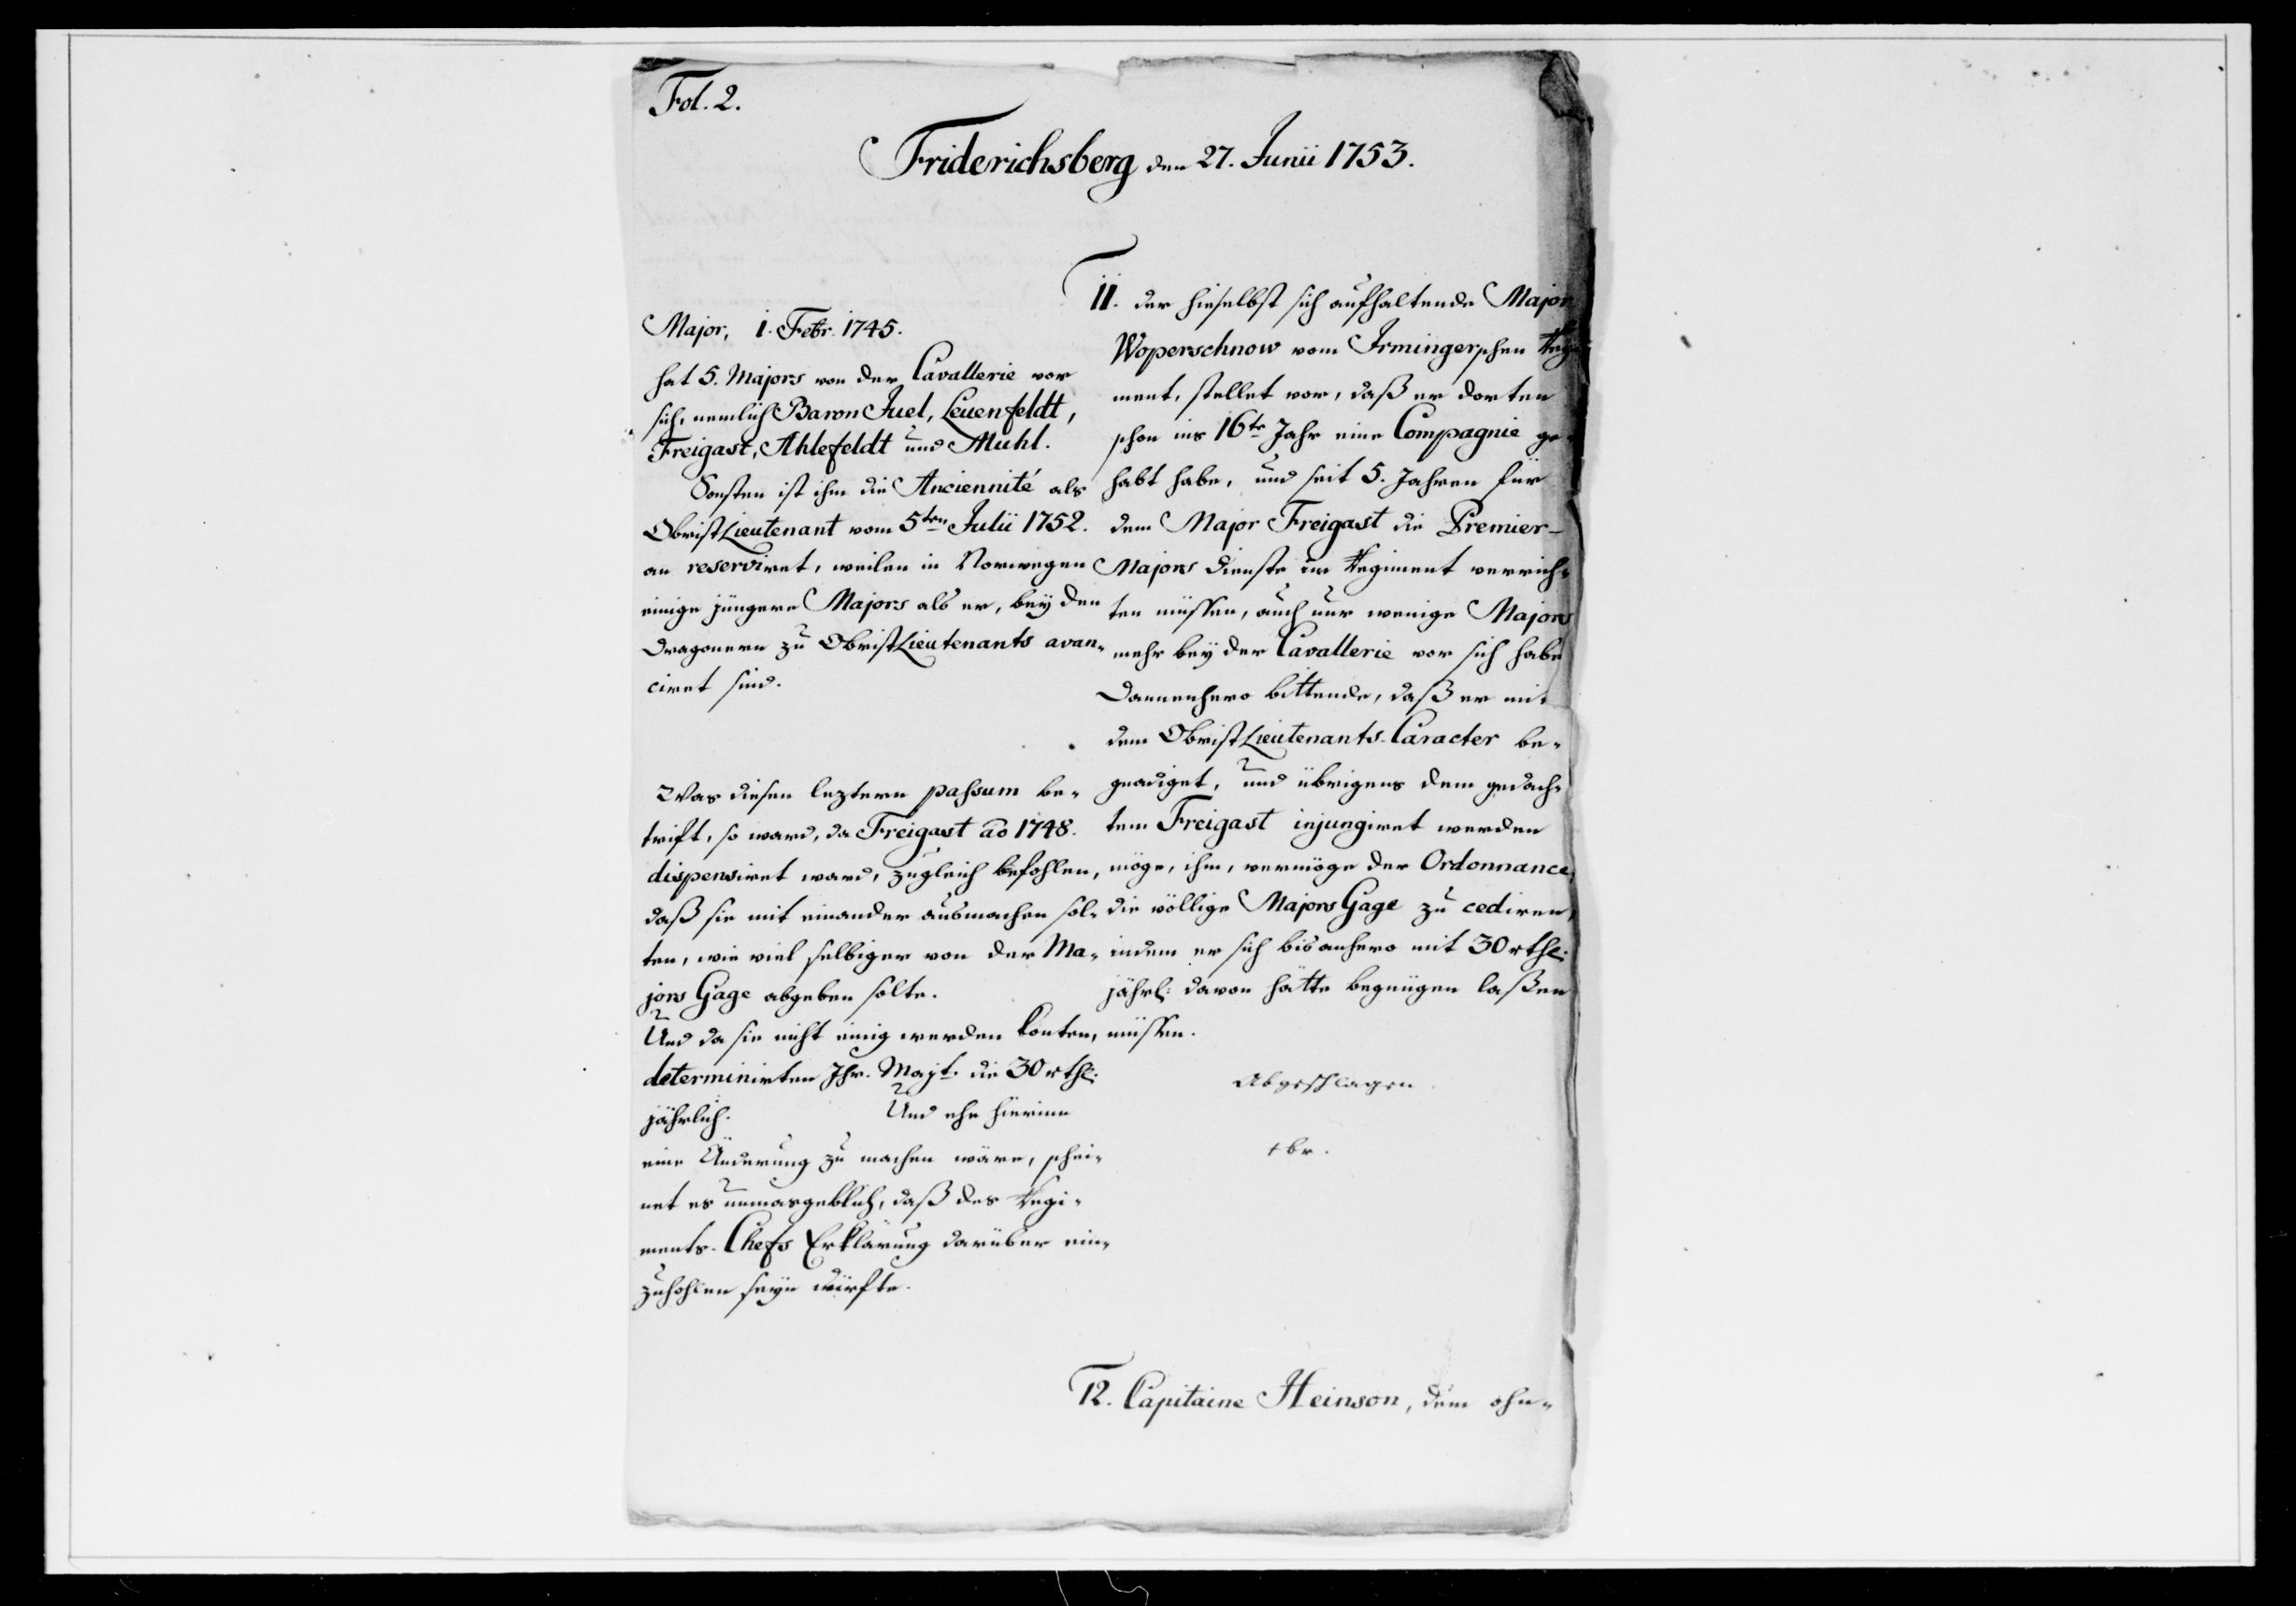 Fol. 2.
Friderichsberg den 27. Junii 1753.
Major, 1. Febr. 1745.
hat 5. Majors von der Cavallerie vor
sich, nemlich Baron Juel, Leuenfeldt,
Freigast, Ahlefeldt und Muhl.
Sonsten ist ihm die Anciennité als
ObristLieutenant vom 5ten Julii 1752.
an reserviret, weilen in Norwegen
einige jüngere Majors als er, bey den
Dragonern zu ObristLieutenants avan-
ciret sind.
Was diesen leztern passum be-
trift, so ward, da Freigast ao 1748.
dispensiret ward, zugleich befohlen,
daß sie mit einander ausmachen sol-
ten, wie viel selbiger von der Ma-
jors Gage abgeben solte.
Und da sie nicht einig werden konten,
determinirten Ihr. Majt. die 30 rthl:
jährlich. Und ehe hierinn
eine Änderung zu machen wäre, schei-
net es unmasgeblich, daß des Regi-
ments-Chefs Erklärung darüber ein-
zuhohlen seyn dürfte.
11. der hieselbst sich aufhaltende Major
Woperschnow vom Irmingerschen Regi-
ment, stellet vor, daß er dorten
schon ins 16te Jahr eine Compagnie ge-
habt habe, und seit 5. Jahren für
dem Major Freigast die Premier-
Majors Dienste im Regiment verrich-
ten müssen, auch nur wenige Majors
mehr bey der Cavallerie vor sich habe
Dannenhero bittende, daß er mit
dem ObristLieutenants-Caracter be-
gnadiget, und übrigens dem gedach-
tem Freigast injungiret werden
möge, ihm, vermöge der Ordonnance,
die völlige Majors Gage zu cediren,
indem er sich bis anhero mit 30 rthl:
jährl: davon hätte begnügen laßen
müssen.
Abgeschlagen.
12. Capitaine Heinson, dem ohn-